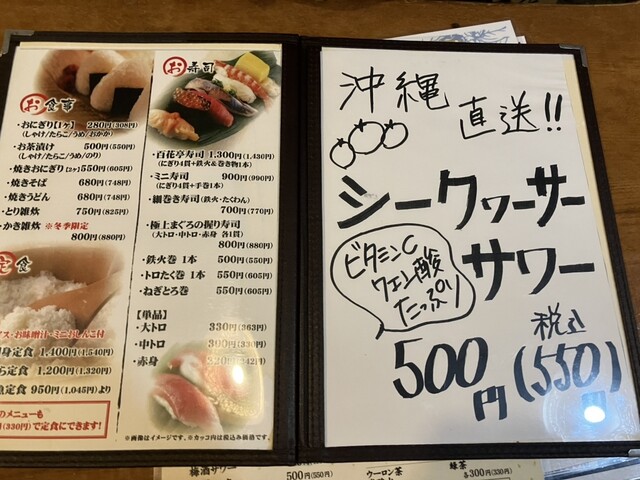 お食事
・おにぎり【1ヶ】 280円(308円)
(しゃけ/たらこ/うめ/おかか)
・お茶漬け 500円(550円)
(しゃけ/たらこ/うめ/のり)
・焼きおにぎり【2ヶ】550円(605円)
・焼きそば 680円(748円)
・焼きうどん 680円(748円)
・とり雑炊 750円(825円)
・かき雑炊 ※冬季限定
800円(880円)
定食
・お味噌汁・ミニおしんこ付
身定食 1,400円(1,540円)
ら定食 1,200円(1,320円)
魚定食 950円(1,045円)より
のメニューも
円(330円)で定食にできます!
お寿司
・百花亭寿司 1,300円(1,430円)
(にぎり4貫+鉄火&巻き物1本)
・ミニ寿司 900円(990円)
(にぎり4貫+手巻1本)
・細巻き寿司(鉄火・たくわん)
700円(770円)
・極上まぐろの握り寿司
(大トロ・中トロ・赤身 各1貫)
800円(880円)
・鉄火巻 1本 500円(550円)
・トロたく巻 1本 550円(605円)
・ねぎとろ巻 550円(605円)
【単品】
・大トロ 330円(363円)
・中トロ 300円(330円)
・赤身
※画像はイメージです。※カッコ内は税込み価格です。
沖縄
直送!!
シークヮーサー
サワー
ビタミンC
クエン酸
たっぷり
500円
税込
(550円)
梅酒サワー 500円(550円)
ウーロン茶
緑茶
各300円(330円)